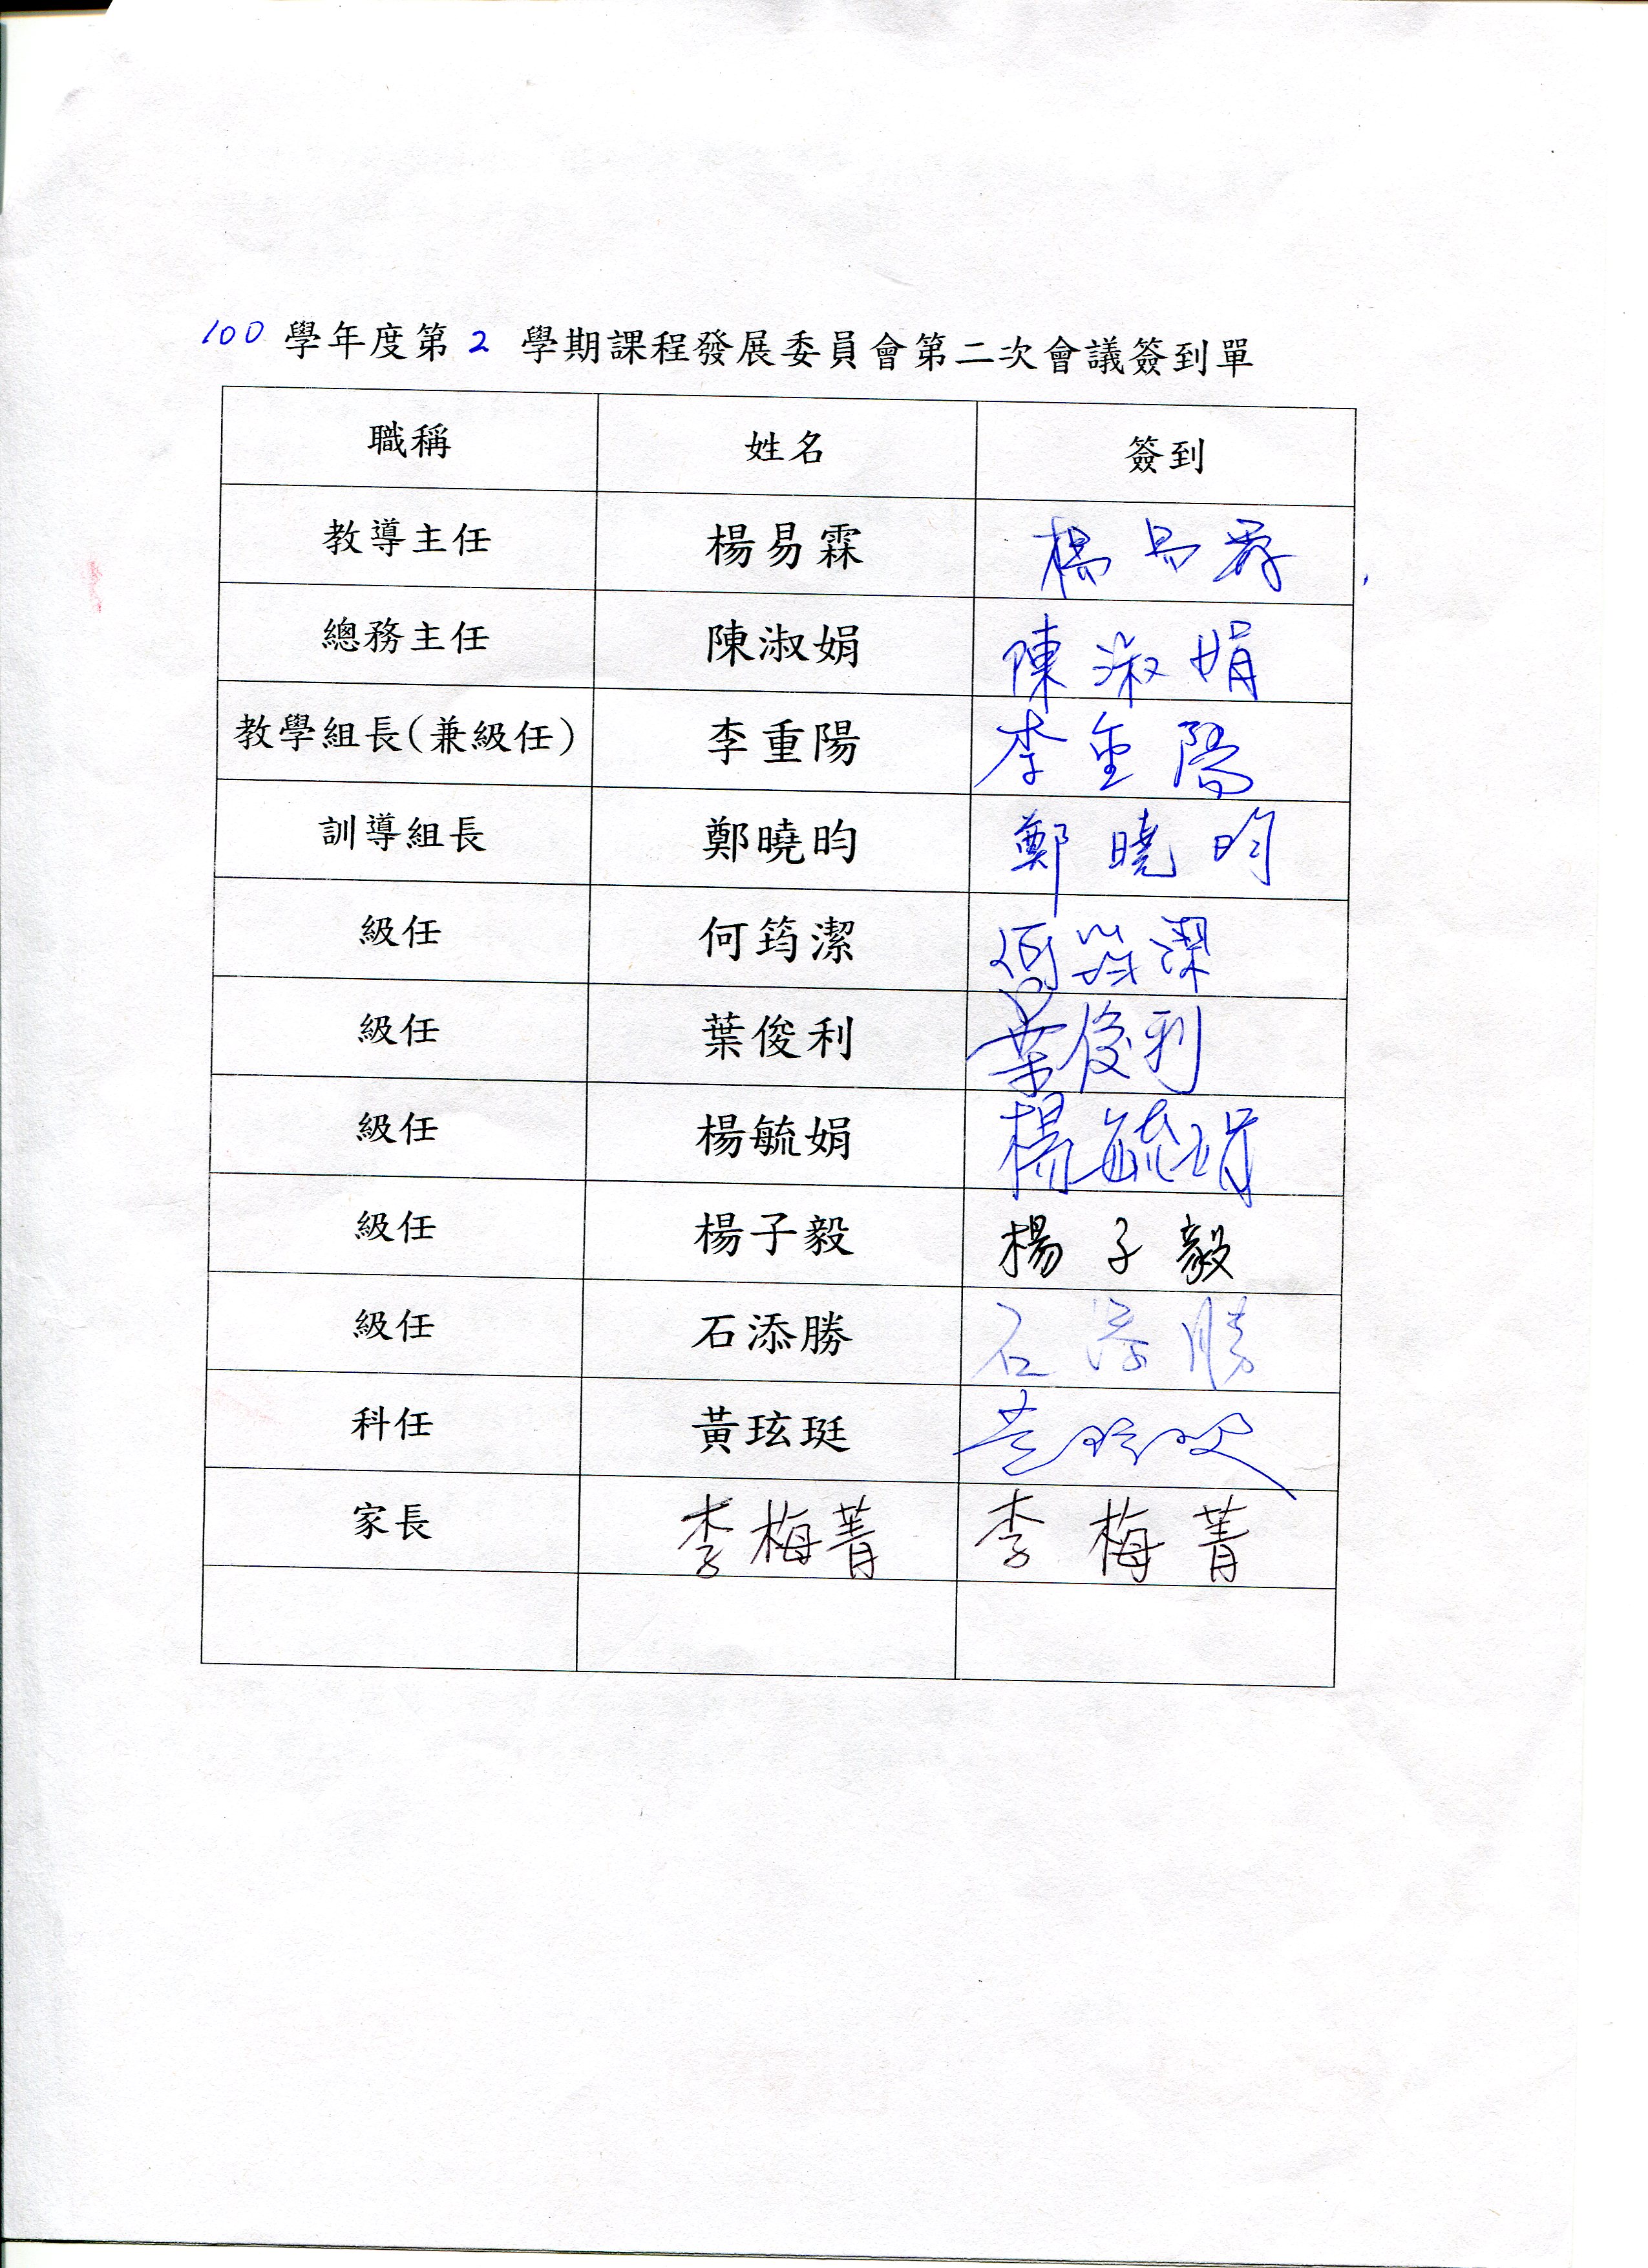 100 學年度第 2 學期課程發展委員會第二次會議簽到單
職稱 姓名 簽到
教導主任 楊易霖 楊易霖
總務主任 陳淑娟 陳淑娟
教學組長(兼級任) 李重陽 李重陽
訓導組長 鄭曉昀 鄭曉昀
級任 何筠潔 何筠潔
級任 葉俊利 葉俊利
級任 楊毓娟 楊毓娟
級任 楊子毅 楊子毅
級任 石添勝 石添勝
科任 黃玹珽 黃玹珽
家長 李梅菁 李梅菁